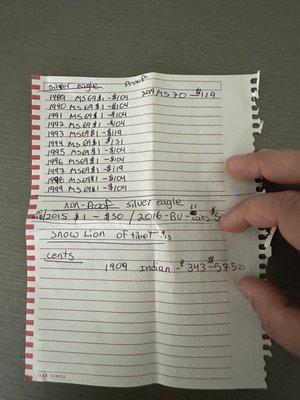 silver eagle Proof
1989 MS69 $1 - $104 2014 MS 70 - $119
1990 MS69 $1 - $104
1991 MS69 $1 - $104
1992 MS69 $1 - $104
1993 MS69 $1 - $119
1994 MS69 $1 - $151
1995 MS69 $1 - $104
1996 MS69 $1 - $104
1997 MS69 $1 - $119
1998 MS69 $1 - $104
1999 MS69 $1 - $104
non-Proof silver eagle
2015 $1 - $50 / 2016 - BU -
Snow Lion of tibet
cents
1909 Indian - $343 -